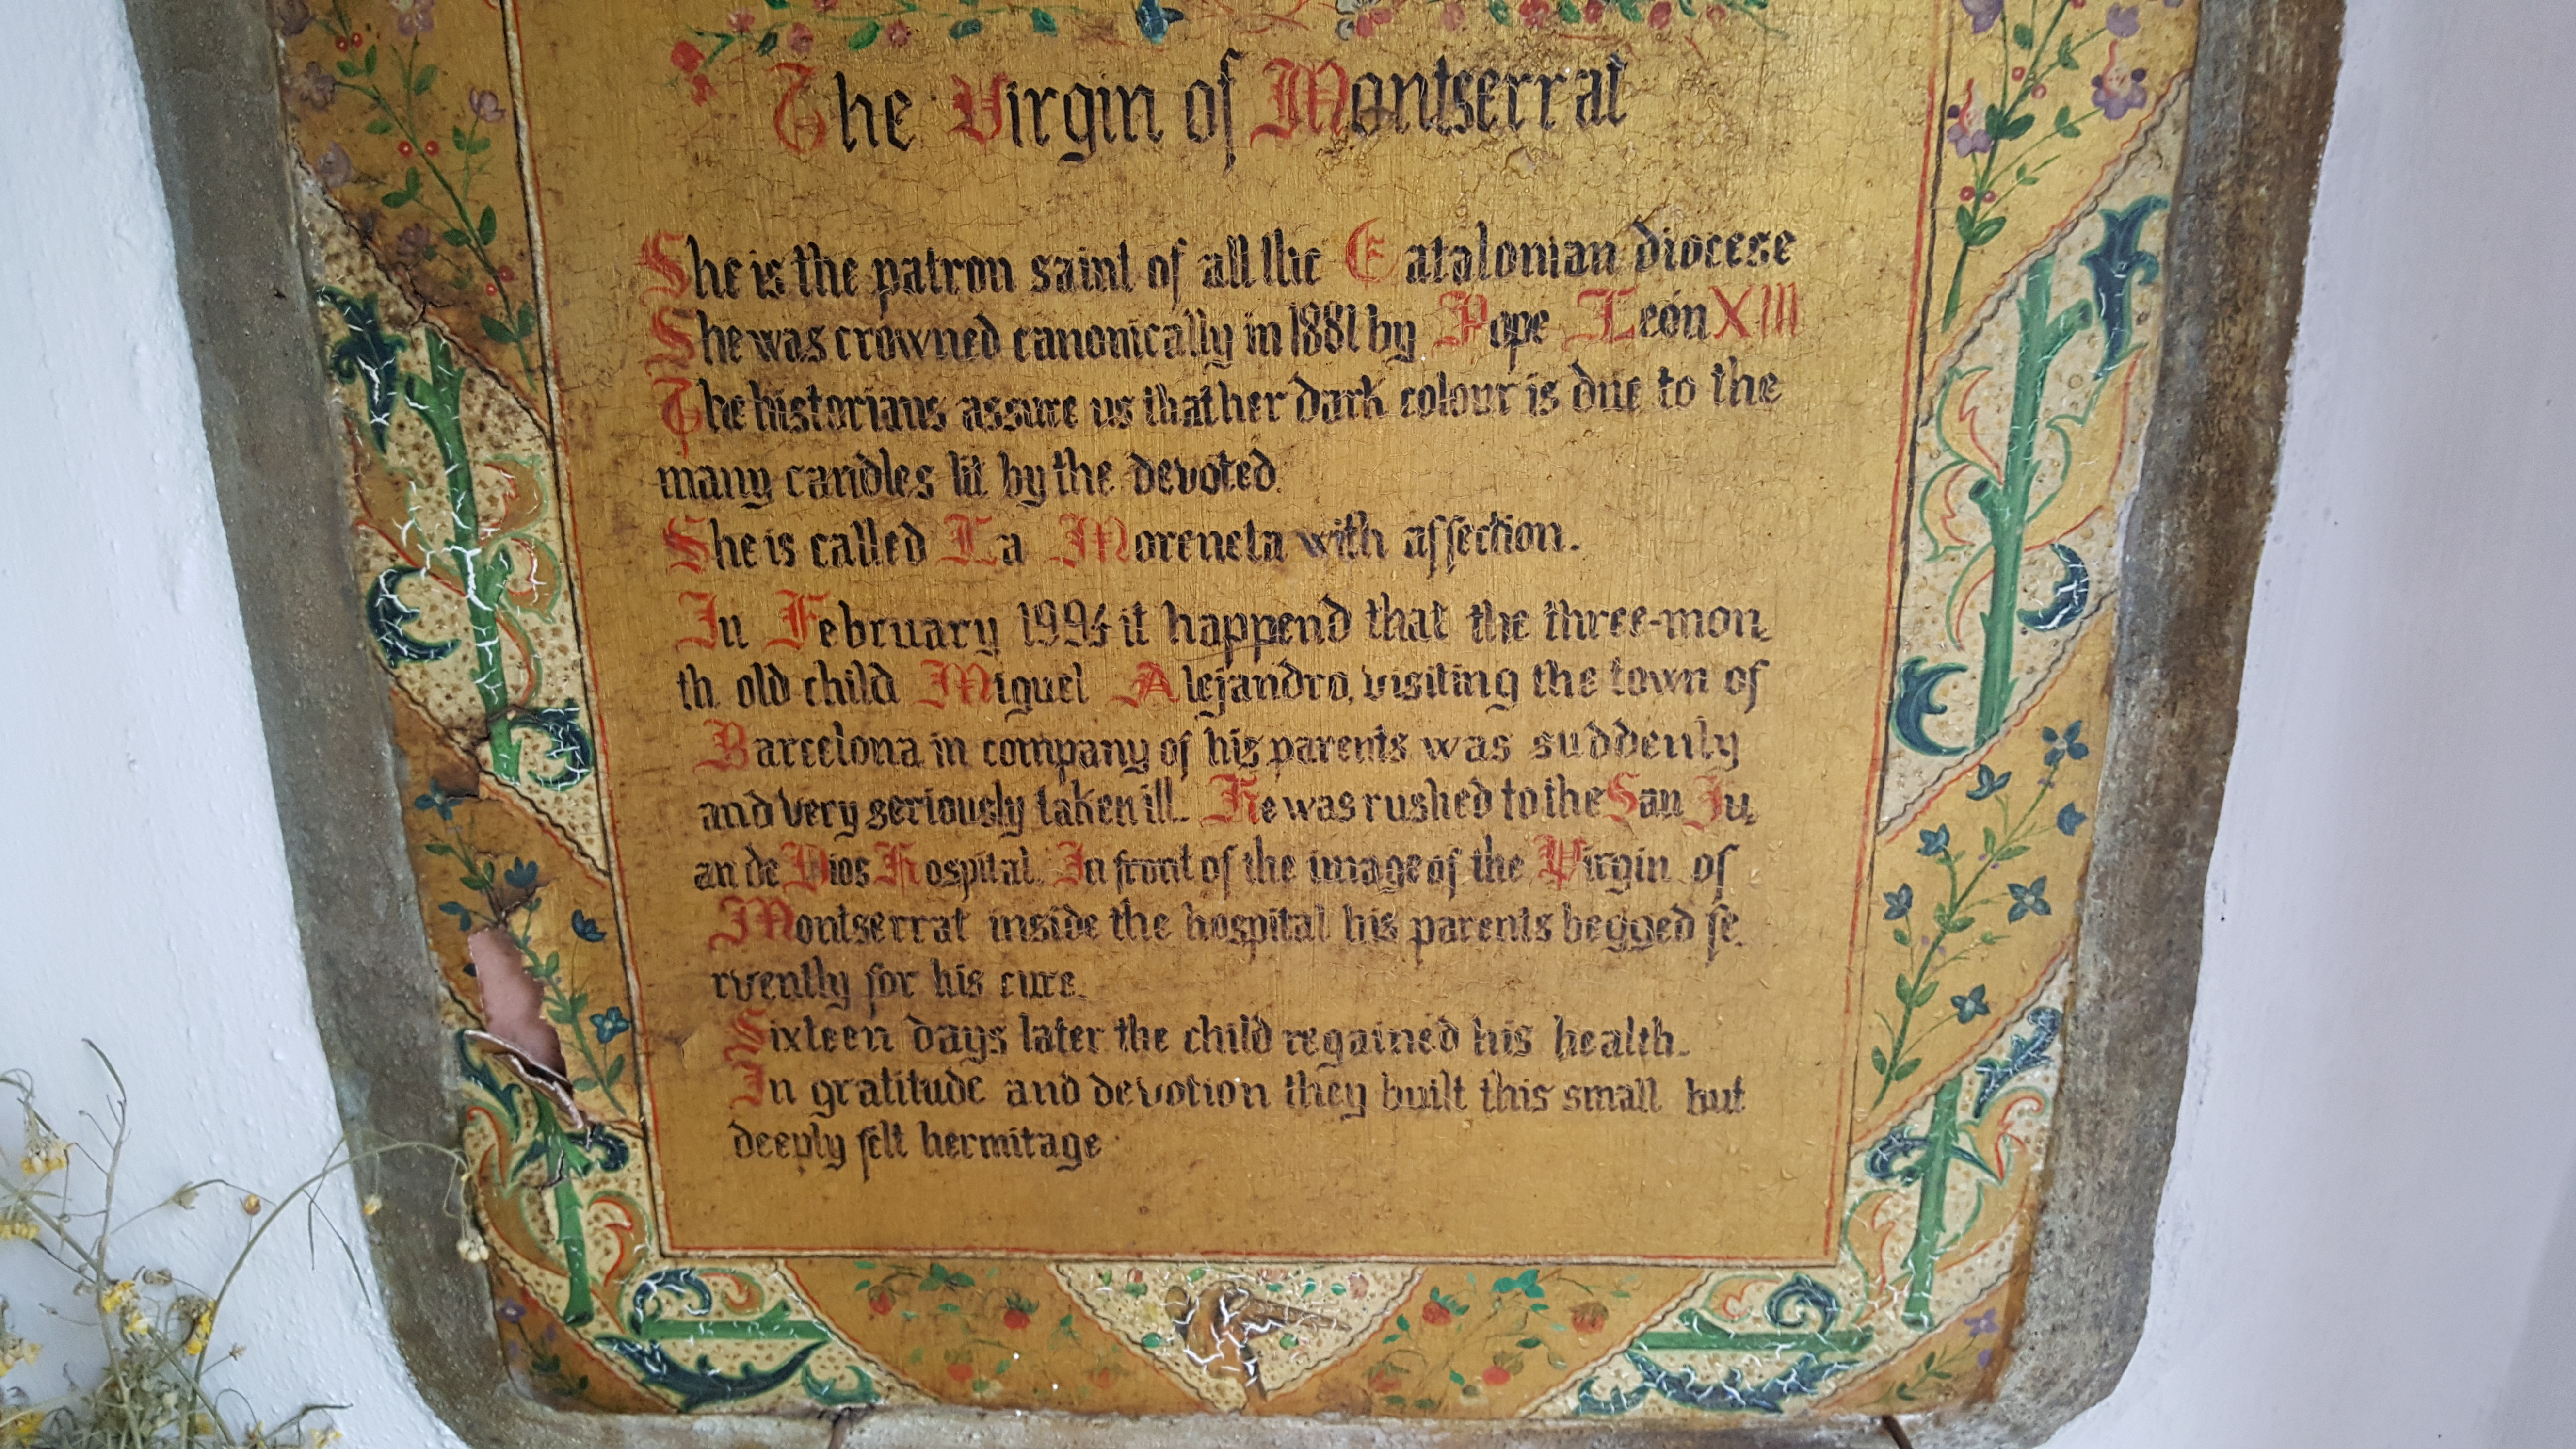 The Virgin of Montserrat
She is the patron saint of all the Catalonian diocese
She was crowned canonically in 1881 by Pope León XIII
The historians assure us that her dark colour is due to the
many candles lit by the devoted.
She is called La Moreneta with affection.
In February 1994 it happend that the three-mon
th old child Miguel Alejandro, visiting the town of
Barcelona in company of his parents was suddenly
and very seriously taken ill. He was rushed to the San Ju
an de Dios Hospital. In front of the image of the Virgin of
Montserrat inside the hospital his parents begged fe
rvently for his cure.
Sixteen days later the child regained his health.
In gratitude and devotion they built this small but
deeply felt hermitage